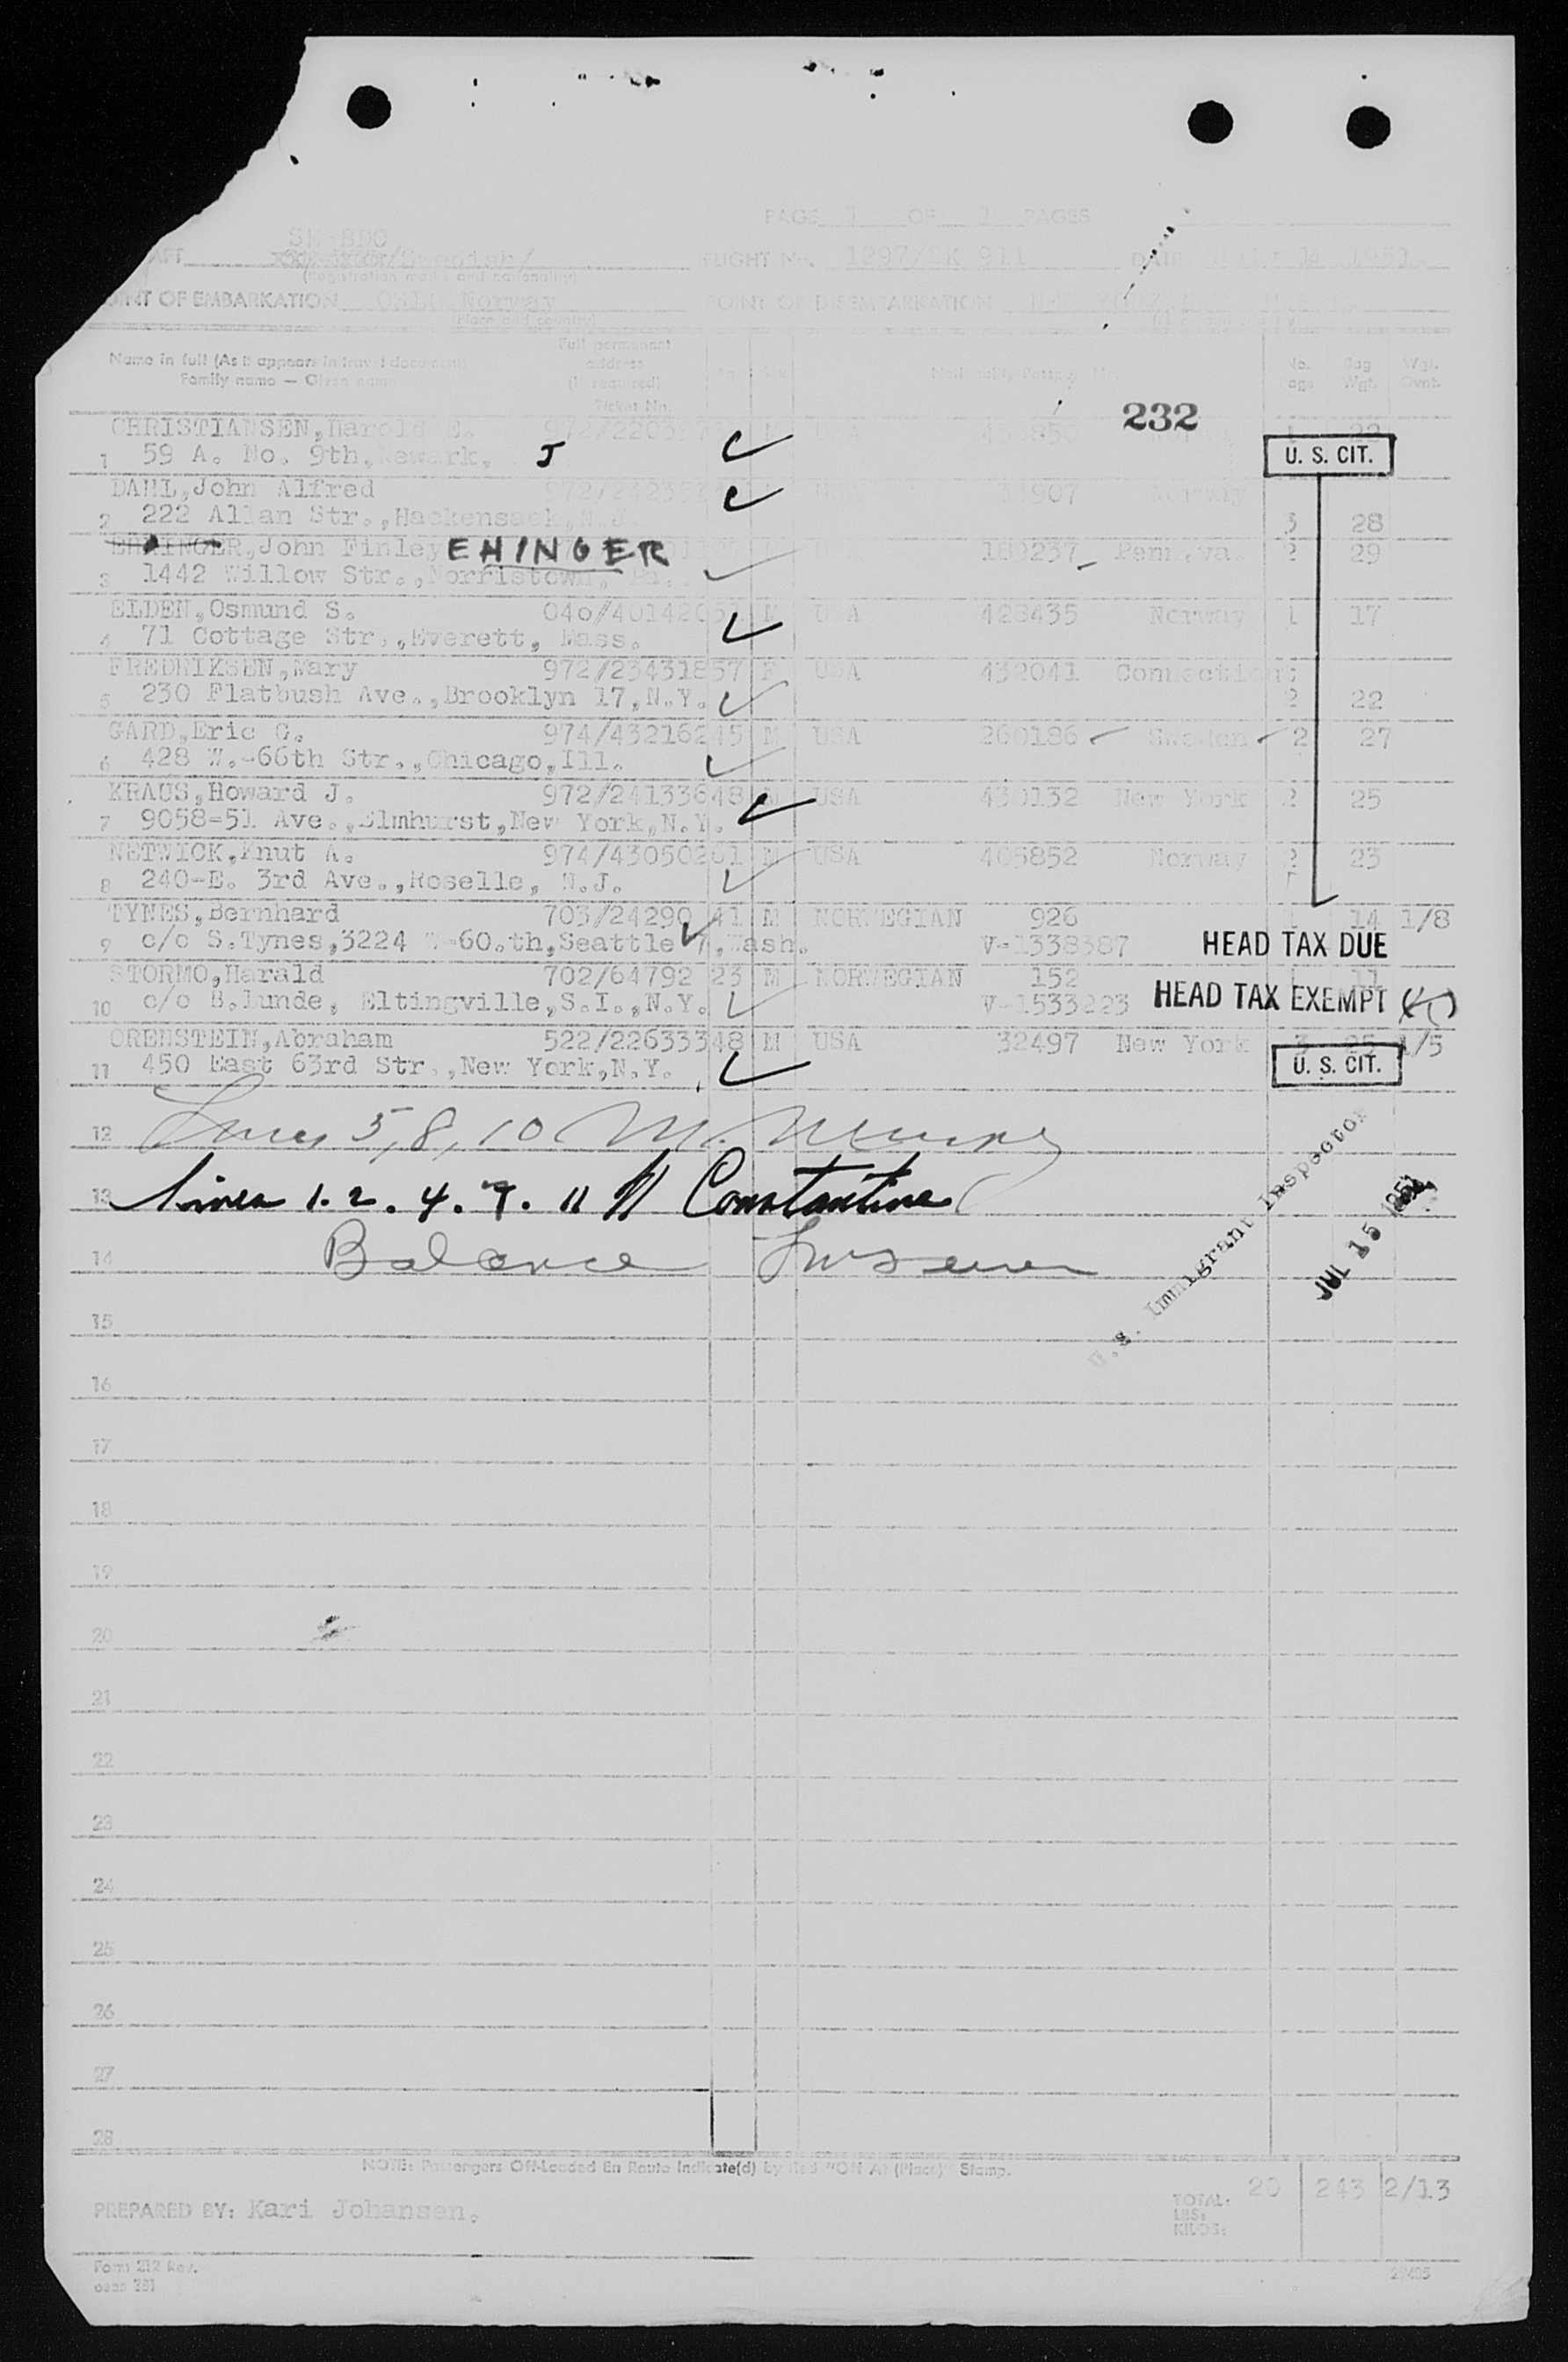 PAGE 1 OF 1 PAGES
FLIGHT No. 1297/SK 911 1951.
POINT OF EMBARKATION OSLO, Norway POINT OF DISEMBARKATION
(Place and country)
Name in full (As it appears in travel document)
Family name — Given name
Full permanent
address
(If required)
Ticket No.
No. Bag Wgt.
Wgt.
232
CHRISTIANSEN,Harold E. 22
1 59 A. No. 9th,Newark, J U. S. CIT.
DAHL,John Alfred 907 Norway
2 222 Allan Str.,Hackensack,N.J. 3 28
John Finley EHINGER 180237 Penn.va 2 29
3 1442 Willow Str.,Norristown, Pa.
ELDEN,Osmund S. 040/401420 M USA 428435 Norway 1 17
4 71 Cottage Str.,Everett, Mass.
FREDRIKSEN,Mary 972/23431857 F USA 432041 Connecticut
5 230 Flatbush Ave.,Brooklyn 17,N.Y. 2 22
GARD,Eric G. 974/43216245 M USA 260186 Sweden 2 27
6 428 W.-66th Str.,Chicago,Ill.
KRAUS,Howard J. 972/24133648 M USA 430132 New York 2 25
7 9058-51 Ave.,Elmhurst,New York,N.Y.
NETWICK,Knut A. 974/43050201 M USA 405852 Norway 2 23
8 240-E. 3rd Ave.,Roselle, N.J.
TYNES,Bernhard 703/24290 41 M NORWEGIAN 926 1 14 1/8
9 c/o S.Tynes,3224 W-60.th,Seattle 7,Wash. V-1338387 HEAD TAX DUE
STORMO,Harald 702/64792 23 M NORWEGIAN 152 1 11
10 c/o B.Lunde, Eltingville,S.I.,N.Y. V-1533223 HEAD TAX EXEMPT
ORENSTEIN,Abraham 522/22633348 M USA 32497 New York 3 25 1/5
11 450 East 63rd Str.,New York,N.Y. U. S. CIT.
12 Lines 5, 8, 10
13 Lines 1. 2. 4. 7. 11 Constantine
14 Balance
U.S. Immigrant Inspector
JUL 15 1951
15
16
17
18
19
20
21
22
23
24
25
26
27
28
NOTE: Passengers Off-Loaded En Route Indicate(d) by Red "Off At (Place)" Stamp.
PREPARED BY: Kari Johansen.
TOTAL: 20 243 2/13
LBS:
KILOS:
Form 212 Rev.